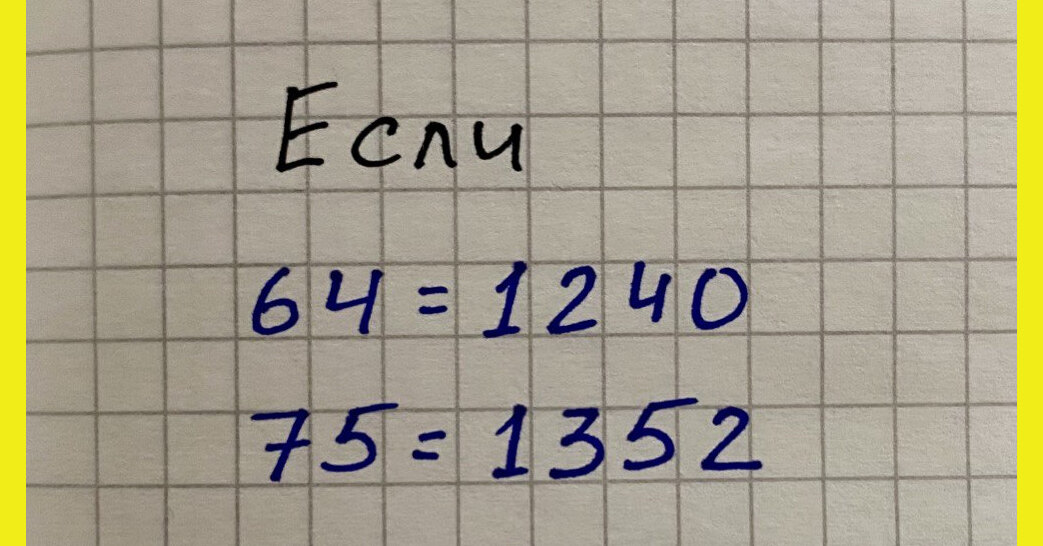 Если
64=1240
75=1352